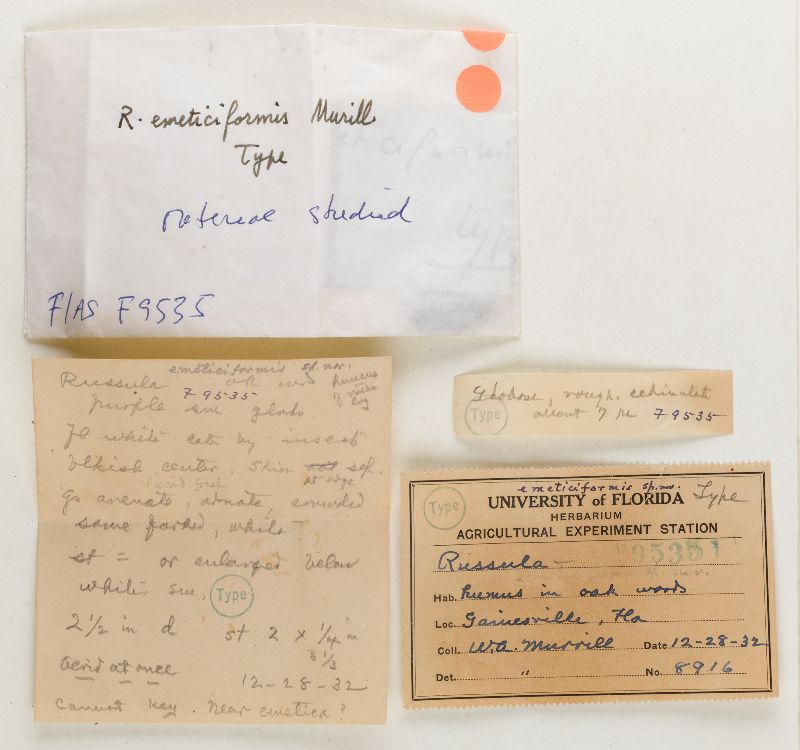 R. emeticiformis Murill
Type
material studied
F/AS F9535
emeticiformis sp. nov.
Russula oak woods humus
F 9535
purple sm glob.
fl white eat by insect
blkish center. Skin not sep.
at edge
gs arcuate, adnate, crowded
some forked, white
st = or enlarges below
white, sm,
Type
2 1/2 in d st 2 x 1/4 in
3 1/3
acrid at once
12-28-32
Cannot key. Near emetica?
Globose, rough, echinulate
Type
about 7 µ F 9535
emeticiformis sp. nov.
Type
UNIVERSITY of FLORIDA
Type
HERBARIUM
AGRICULTURAL EXPERIMENT STATION
F 9535
Russula
Hab. humus in oak woods
Loc. Gainesville, Fla
Coll. W.A. Murrill Date 12-28-32
Det. " No. 8916